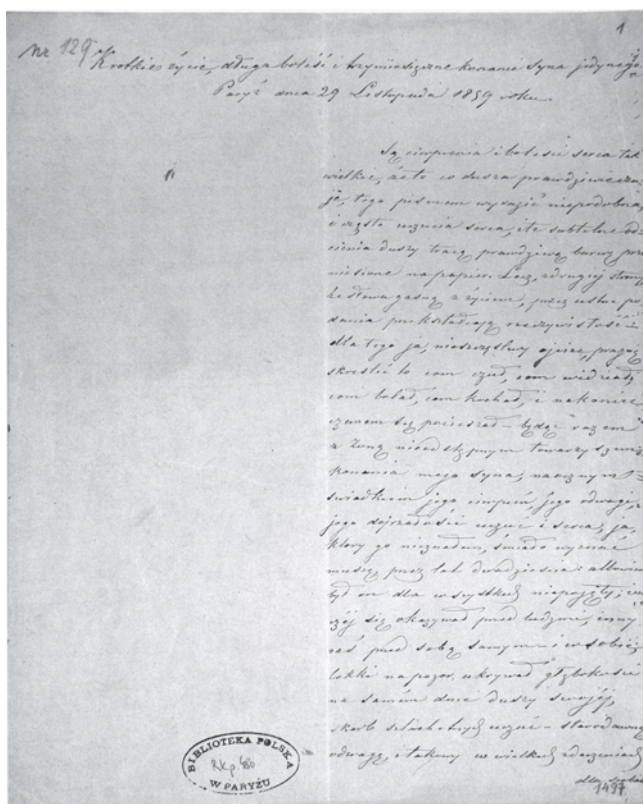 1
Nr 129
Krótkie życie, długa boleść i trzymiesięczne konanie syna jedynego.
Paryż dnia 29 Listopada 1859 roku.
Są cierpienia i boleście serca tak
wielkie, że to co dusza prawdziwie czu-
je, tego pismem wyrazić niepodobna,
i częste uczucia serca, i te subtelne od-
cienia duszy tracą prawdziwą barwę prze
niesione na papier. Lecz, z drugiej strony
że słowa gasną z życiem, przez ustne po
dania przekształcają rzeczywistość –
dla tego ja, nieszczęśliwy ojciec, pragnę
skreślić to com czuł, com widział,
com bolał, com kochał, i nakoniec
czemem się pocieszał – będąc razem
z żoną nieodstępnym towarzyszem
konania mego syna, naocznym
świadkiem jego cierpień, jego odwagi,
jego dojrzałości uczuć i serca, ja,
który go nieznałem, śmiało wyznać
muszę, przez lat dwadzieścia: albowiem
był on dla wszystkich niepojęty;
się okazywał przed ludźmi, inny
zaś przed sobą samym i w sobie,
lekki na pozór, ukrywał głęboko
na samém dnie duszy swojéj,
skarb szlachetnych uczuć – starodawną
odwagę i takowy w wielkich zdarzeniach
dla
1497
BIBLIOTEKA POLSKA
Rkp. 486
W PARYŻU